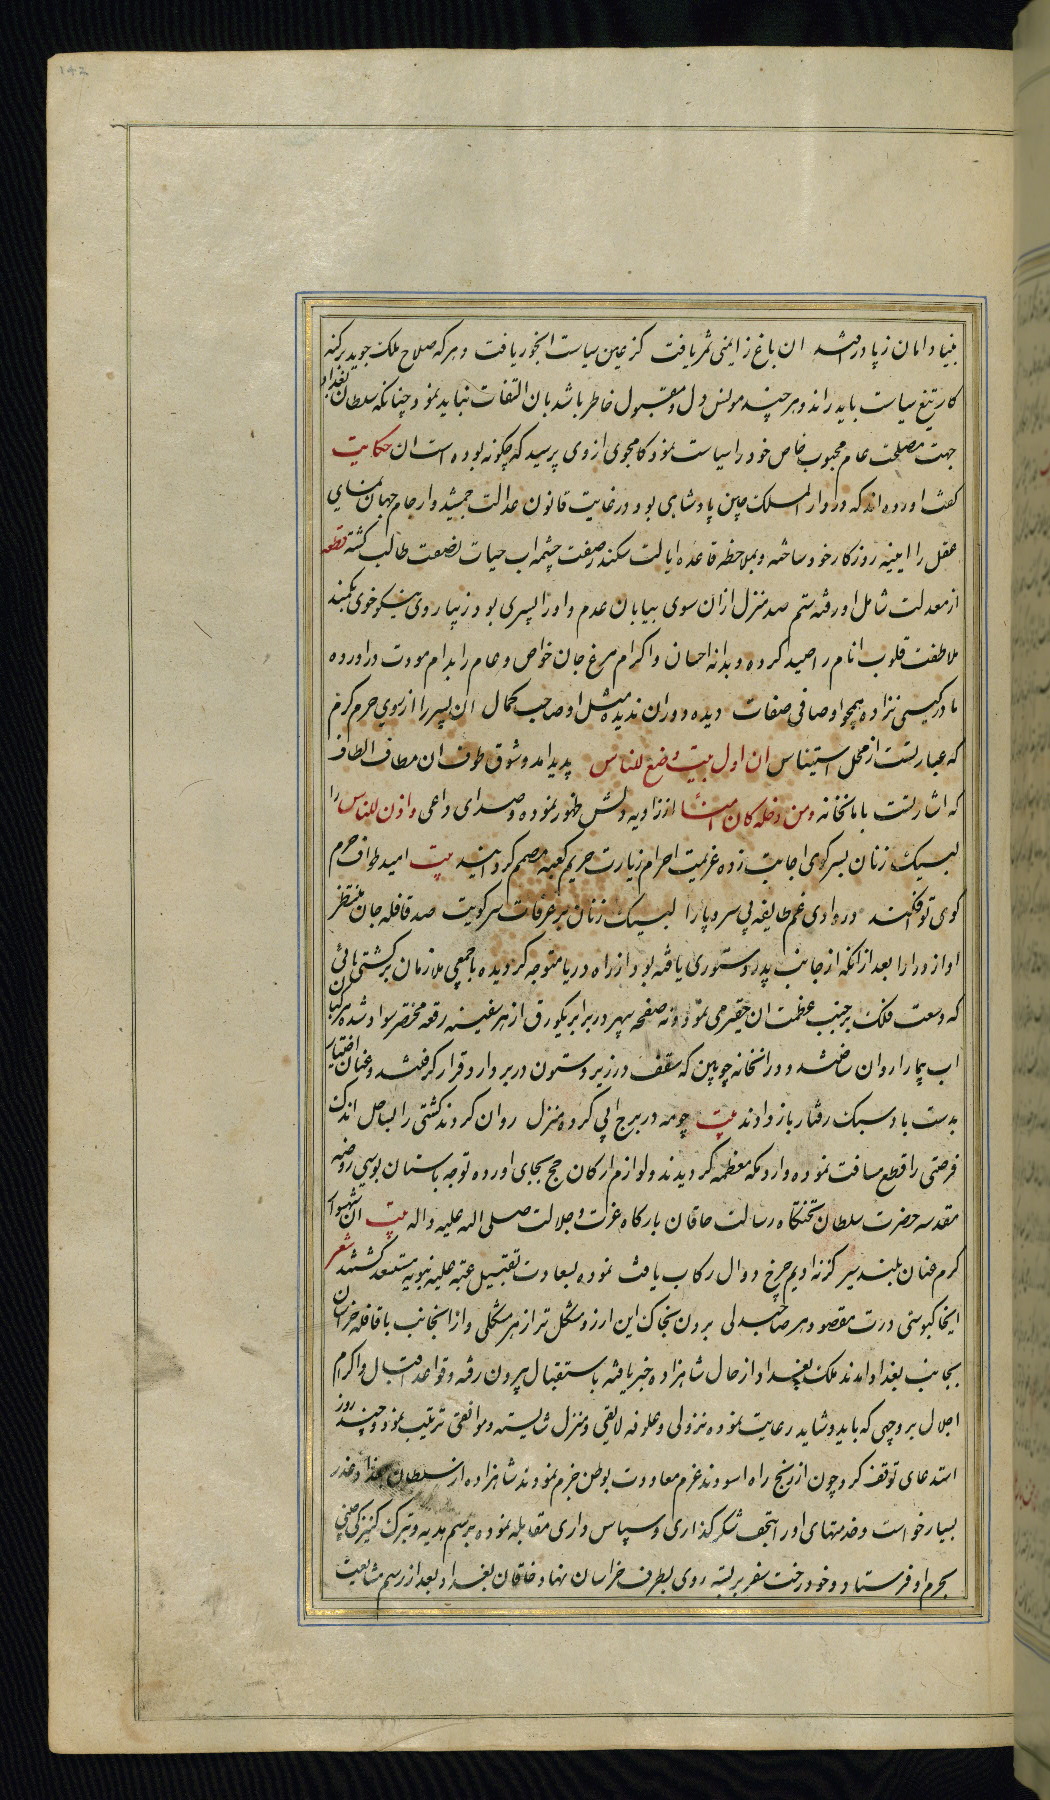 ۱۴۲
بنیاد امان ز پا درافتد ان باغ ز ایمنی ثمر یافت کز عین سیاست ابخور یافت و هر که صلاح ملک جوید بر کنه
کار تیغ سیاست باید راند و هر چند مونس دل و مقبول خاطر باشد بان التفات نباید نمود چنانکه سلطان بغداد
جهت مصلحت عام محبوب خاص خود را سیاست نمود کامجوی از وی پرسید که چکونه بوده است ان حکایت
کفت اورده اند که در دار الملک چین پادشاهی بود در غایت قانون عدالت جمشید وار جام جهان نمای
عقل را ایینه روزکار خود ساخته و بملاحظه قاعده ایالت سکندر صفت چشمه اب حیات نصفت طالب کشته قطعه
از معدلت شامل او رفته ستم صد منزل از ان سوی بیابان عدم و او را پسری بود زیبا روی نیکو خوی بکمند
ملاطفت قلوب انام را صید کرده و بدانه احسان و اکرام مرغ جان خواص و عام را بدام مودت در اورده
مادر کیتی نزاده همچو او صافی صفات دیده دوران ندیده مثل او صاحب کمال ان پسر را ارزوی حرم کرم
که عبارتست از محل استیناس ان اول بیت وضع للناس پدید امد و شوق طوف ان مطاف الطاف
که اشارتست بامانخانه و من دخله کان امنا از زاویه دلش ظهور نموده و صدای داعی و اذن للناس را
لبیک زنان بسر کوی اجابت زده عزیمت احرام زیارت حریم کعبه مصمم کردانید بیت امید طواف حرم
کوی تو فکند در وادی غم طایفه بی سر و پا را لبیک زنان بر عرفات سر کویت صد قافله جان منتظر
اواز درا را بعد از انکه از جانب پدر دستوری یافته بود از راه دریا متوجه کردیده با جمعی ملازمان بر کشتی هائی
که وسعت فلک بر جنب عظمت ان حقیر می نمود و نه صفحه سپهر در برابر یکورق از هر سفینه رقعه مختصر سوار شده مرکبان
اب پیما را روان ساختند و در انخانه چوبین که سقف در زیر و ستون در بر دارد قرار کرفتند و عنان اختیار
بدست باد سبک رفتار باز دادند بیت چو مه در برج ابی کرده منزل روان کردند کشتی را بساحل اندک
فرصتی را قطع مسافت نموده وارد مکه معظمه کردیدند و لوازم ارکان حج بجای اورده توجه باستان بوسی روضه
مقدسه حضرت سلطان تختکاه رسالت خاقان بارکاه عزت و جلالت صلی الله علیه و اله بیت ان شهسوار
کرم عنان بلند سیر کز نه ادیم چرخ دوال رکاب یافت نموده بسعادت تقبیل عتبه علیه نبویه مستسعد کشتند شعر
اینخاکبوسی درت مقصود هر صاحبدلی بردن بخاک این ارزو مشکل تر از هر مشکلی و از انجانب با قافله خراسان
بجانب بغداد امدند ملک بغداد از حال شاهزاده خبر یافته باستقبال بیرون رفته و قواعد اقبال و اکرام
اجلال بر وجهی که باید و شاید رعایت نموده نزولی و علوفه لایقی و منزل شایسته و موافقی ترتیب نمود و چند روز
استدعای توقف کرد چون از رنج راه اسودند عزم معاودت بوطن جزم نمودند شاهزاده از سلطان بغداد عذر
بسیار خواست و خدمتهای او را بتحف شکر کذاری و سپاس داری مقابله نموده برسم هدیه و تبرک کنیزکی چینی
بحرم او فرستاد و خود رخت سفر بربسته روی بطرف خراسان نهاد و خاقان بغداد بعد از رسم مشایعت